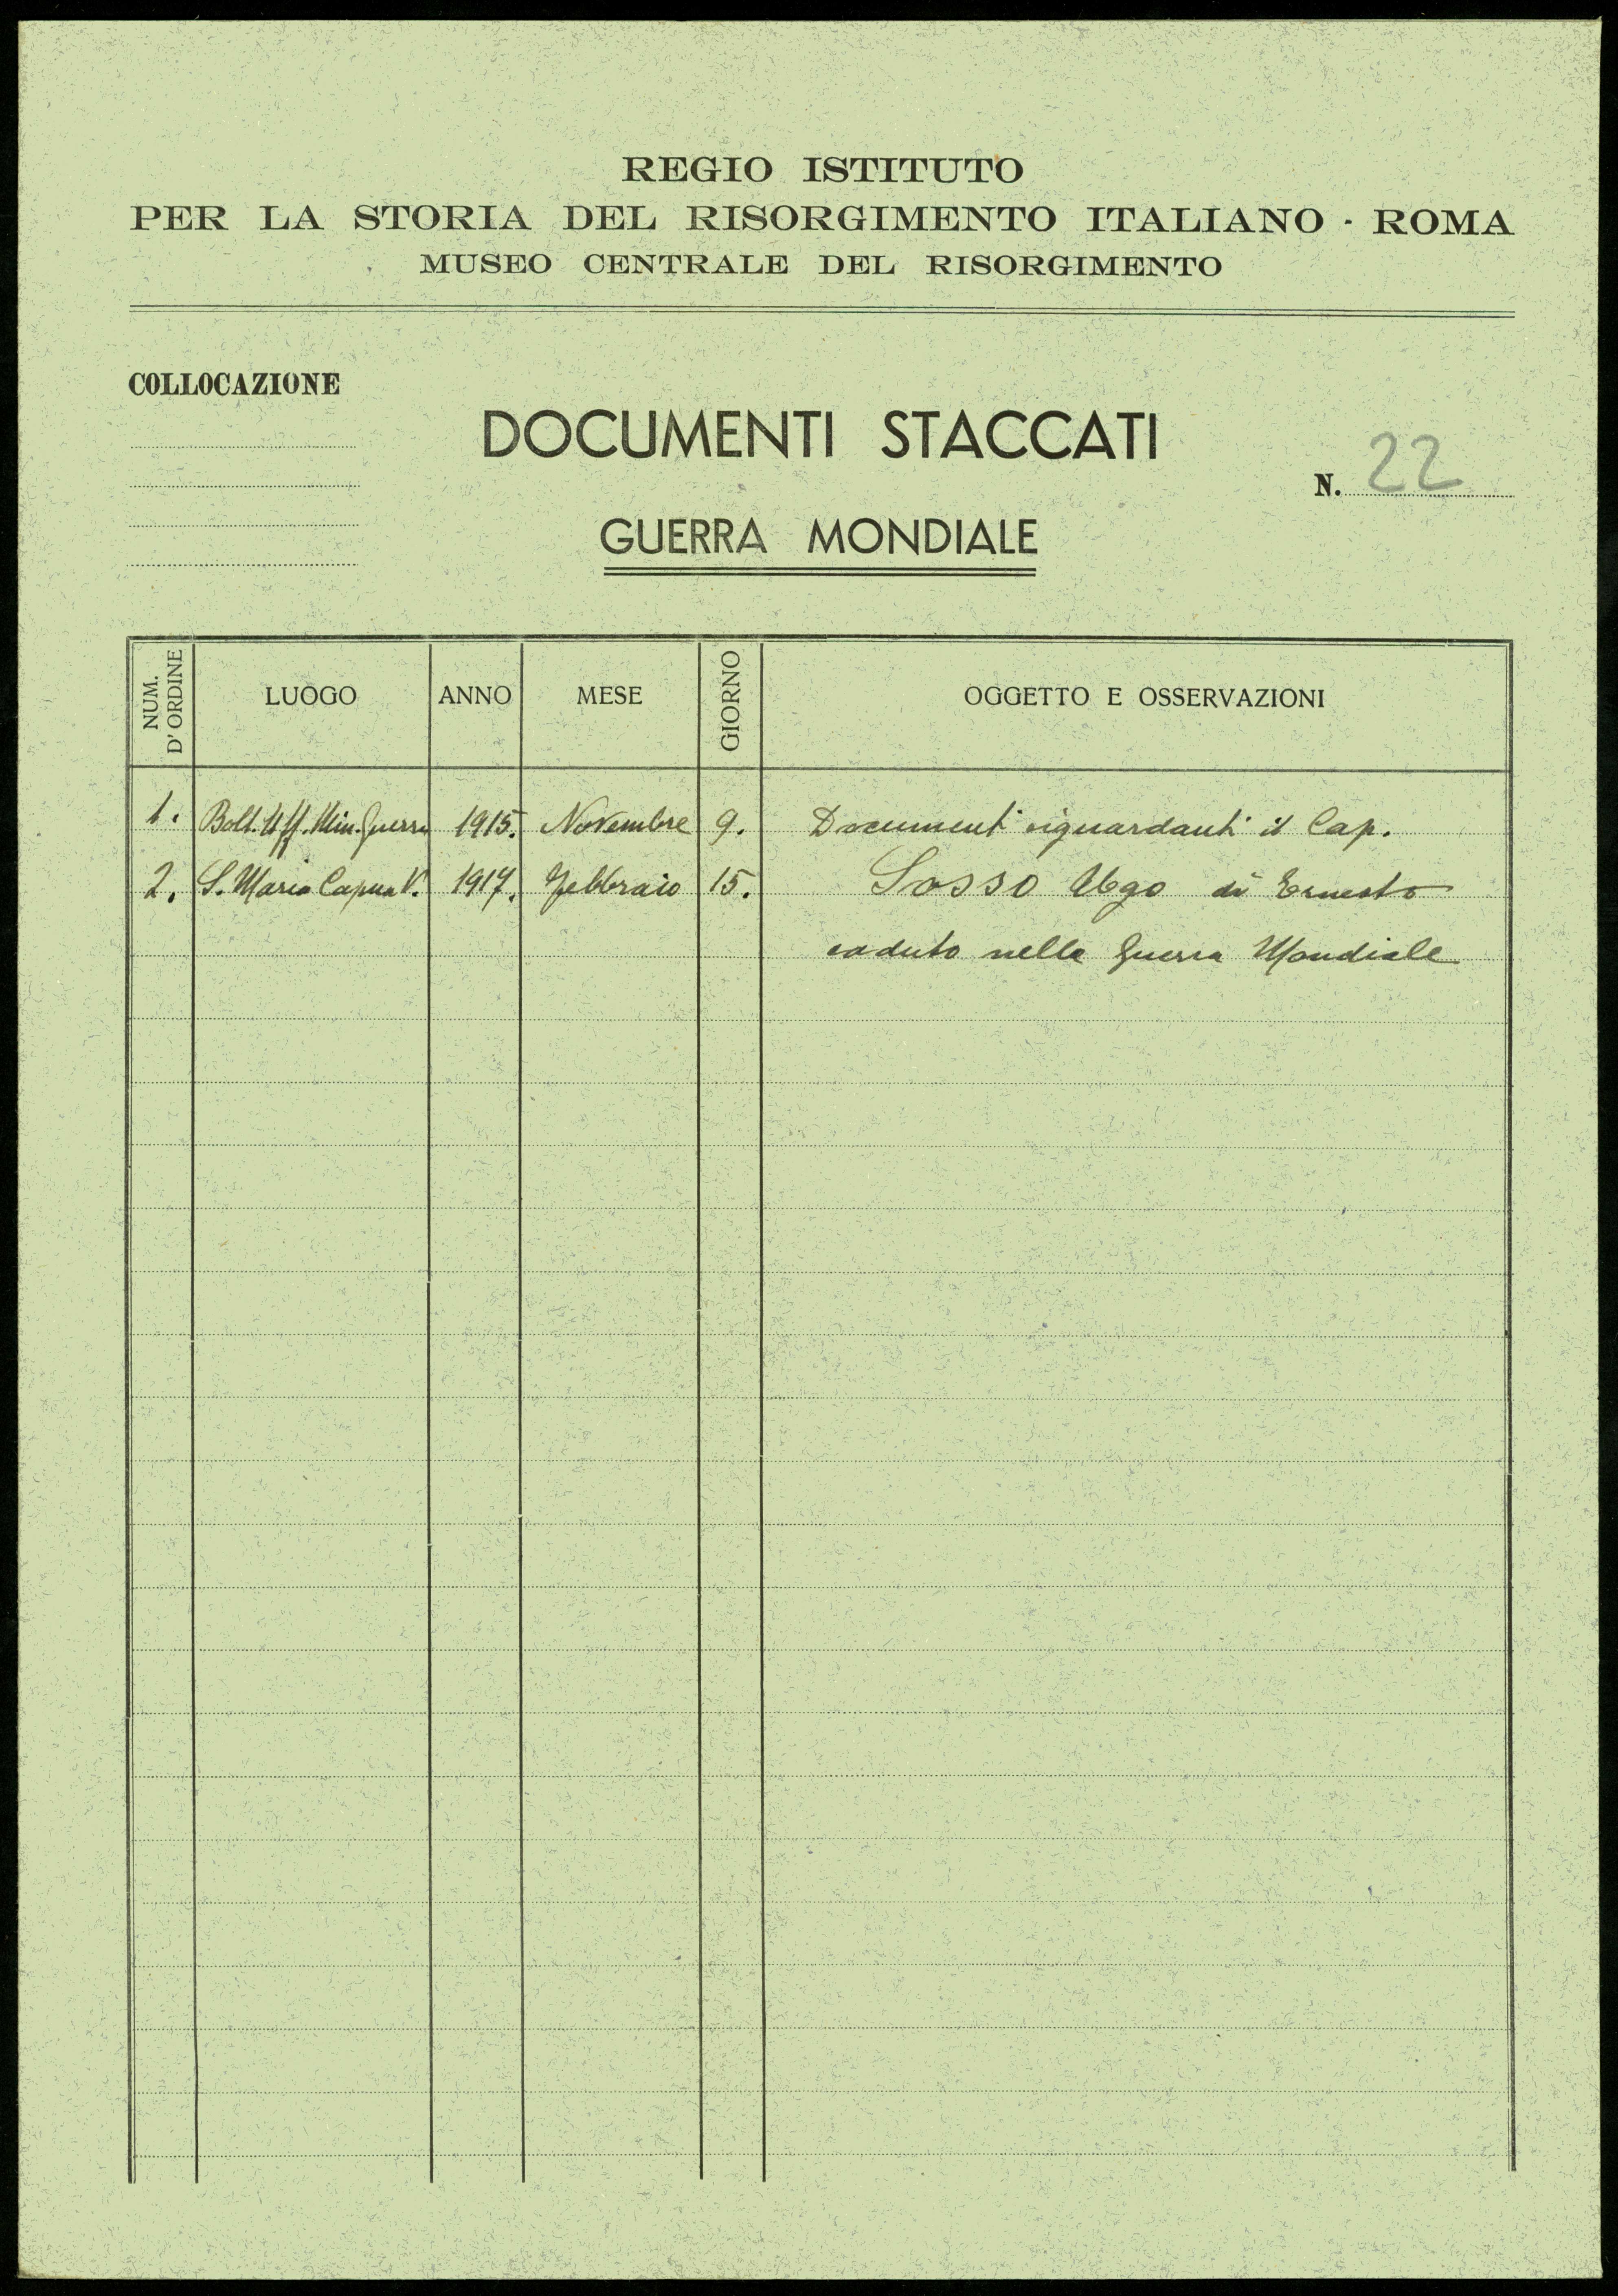 REGIO ISTITUTO
PER LA STORIA DEL RISORGIMENTO ITALIANO - ROMA
MUSEO CENTRALE DEL RISORGIMENTO
COLLOCAZIONE
DOCUMENTI STACCATI
N. 22
GUERRA MONDIALE
NUM. D' ORDINE LUOGO ANNO MESE GIORNO OGGETTO E OSSERVAZIONI
1. Boll. Uff. Min. Guerra 1915. Novembre 9. Documenti riguardanti il Cap.
2. S. Maria Capua V. 1917. Febbraio 15. Sosso Ugo di Ernesto
caduto nella Guerra Mondiale